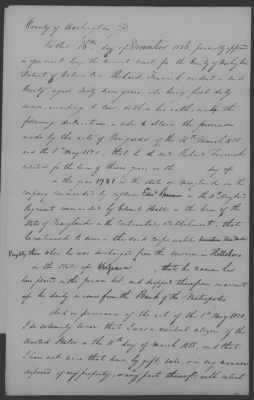 County of Washington
On this 16th day of December 1826, personally appeared
in open court, being the circuit court for the County of Washington
District of Columbia Richard resident in said
County, aged sixty years, who being first duly
sworn, according to law, doth on his oath, make the
following declaration, in order to obtain the provision
made by the acts of Congress of the 18th March 1818
and the 1st May 1820: that he the said Richard
enlisted for the term of three years on the day of
in the year 1781 in the state of Maryland in the
company commanded by captain Edwd Spurrier in the 4th Maryland
Regiment commanded by Colonel Hall in the line of the
State of Maryland on the Continental establishment; that
he continued to serve in the said corps until
Eighty three when he was discharged from the service in Hillsboro
in the state of Virginia, that he came his
in the present list, and support therefrom on account
of his daily as from the Bank of the Metropolis
And in pursuance of the act of the 1st May 1820,
I do solemnly swear that I was a resident citizen of the
United States on the 18th day of March 1818, and that
I have not since that time, by gift, sale, or in any manner
disposed of my property, or any part thereof, with intent